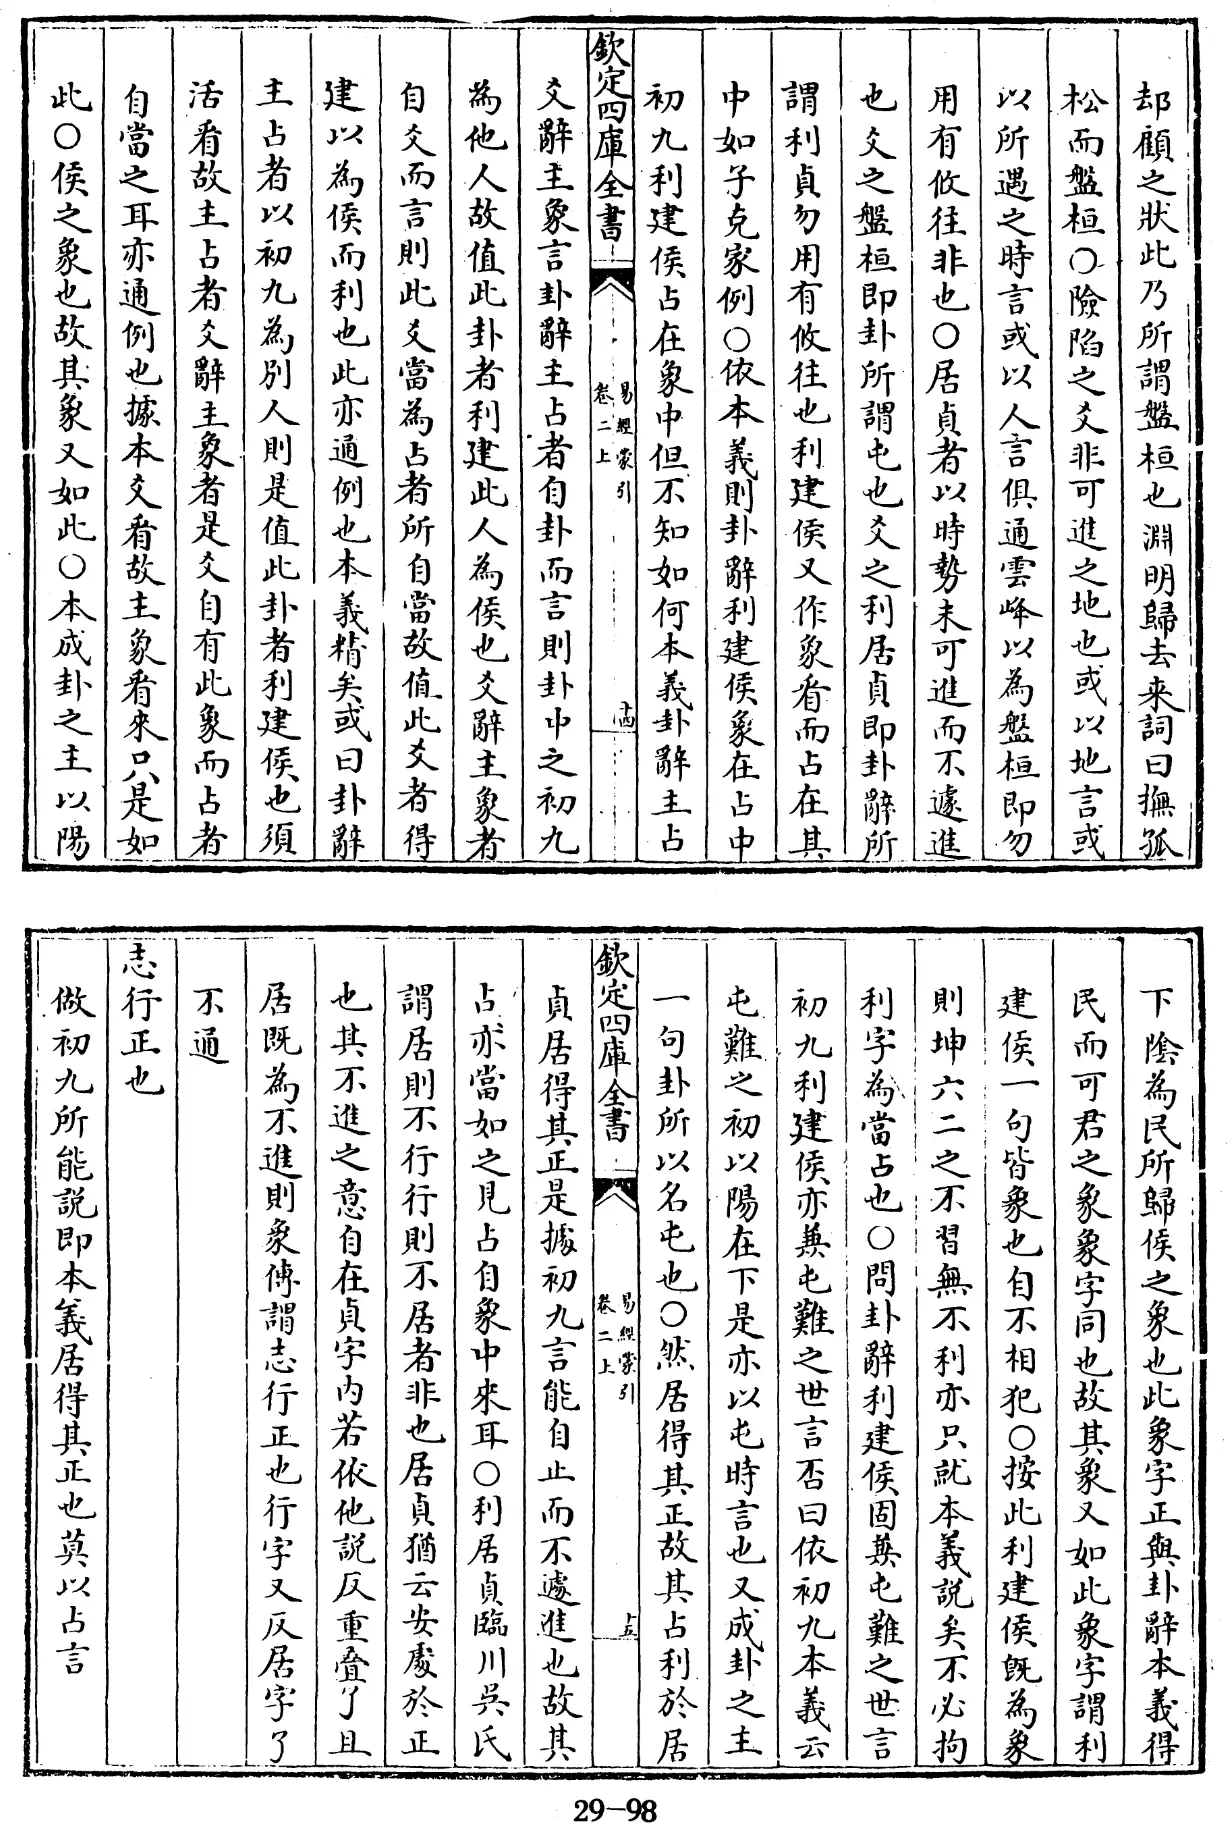 却顧之狀此乃所謂盤桓也淵明歸去来詞曰撫孤
松而盤桓〇險陷之爻非可進之地也或以地言或
以所遇之時言或以人言俱通雲峰以為盤桓即勿
用有攸往非也〇居貞者以時勢未可進而不遽進
也爻之盤桓即卦所謂屯也爻之利居貞即卦辭所
謂利貞勿用有攸往也利建侯又作象看而占在其
中如子克家例〇依本義則卦辭利建侯象在占中
初九利建侯占在象中但不知如何本義卦辭主占
欽定四庫全書
易經蒙引
卷二上
十四
爻辭主象言卦辭主占者自卦而言則卦中之初九
為他人故值此卦者利建此人為侯也爻辭主象者
自爻而言則此爻當為占者所自當故值此爻者得
建以為侯而利也此亦通例也本義精矣或曰卦辭
主占者以初九為別人則是值此卦者利建侯也須
活看故主占者爻辭主象者是爻自有此象而占者
自當之耳亦通例也據本爻看故主象看來只是如
此〇侯之象也故其象又如此〇本成卦之主以陽
下隂為民所歸侯之象也此象字正與卦辭本義得
民而可君之象象字同也故其象又如此象字謂利
建侯一句皆象也自不相犯〇按此利建侯既為象
則坤六二之不習無不利亦只就本義說矣不必拘
利字為當占也〇問卦辭利建侯固兼屯難之世言
初九利建侯亦兼屯難之世言否曰依初九本義云
屯難之初以陽在下是亦以屯時言也又成卦之主
一句卦所以名屯也〇然居得其正故其占利於居
欽定四庫全書
易經蒙引
卷二上
十五
貞居得其正是據初九言能自止而不遽進也故其
占亦當如之見占自象中來耳〇利居貞臨川吳氏
謂居則不行行則不居者非也居貞猶云安處於正
也其不進之意自在貞字内若依他說反重疊了且
居既為不進則象傳謂志行正也行字又反居字了
不通
志行正也
做初九所能說即本義居得其正也莫以占言
29-98